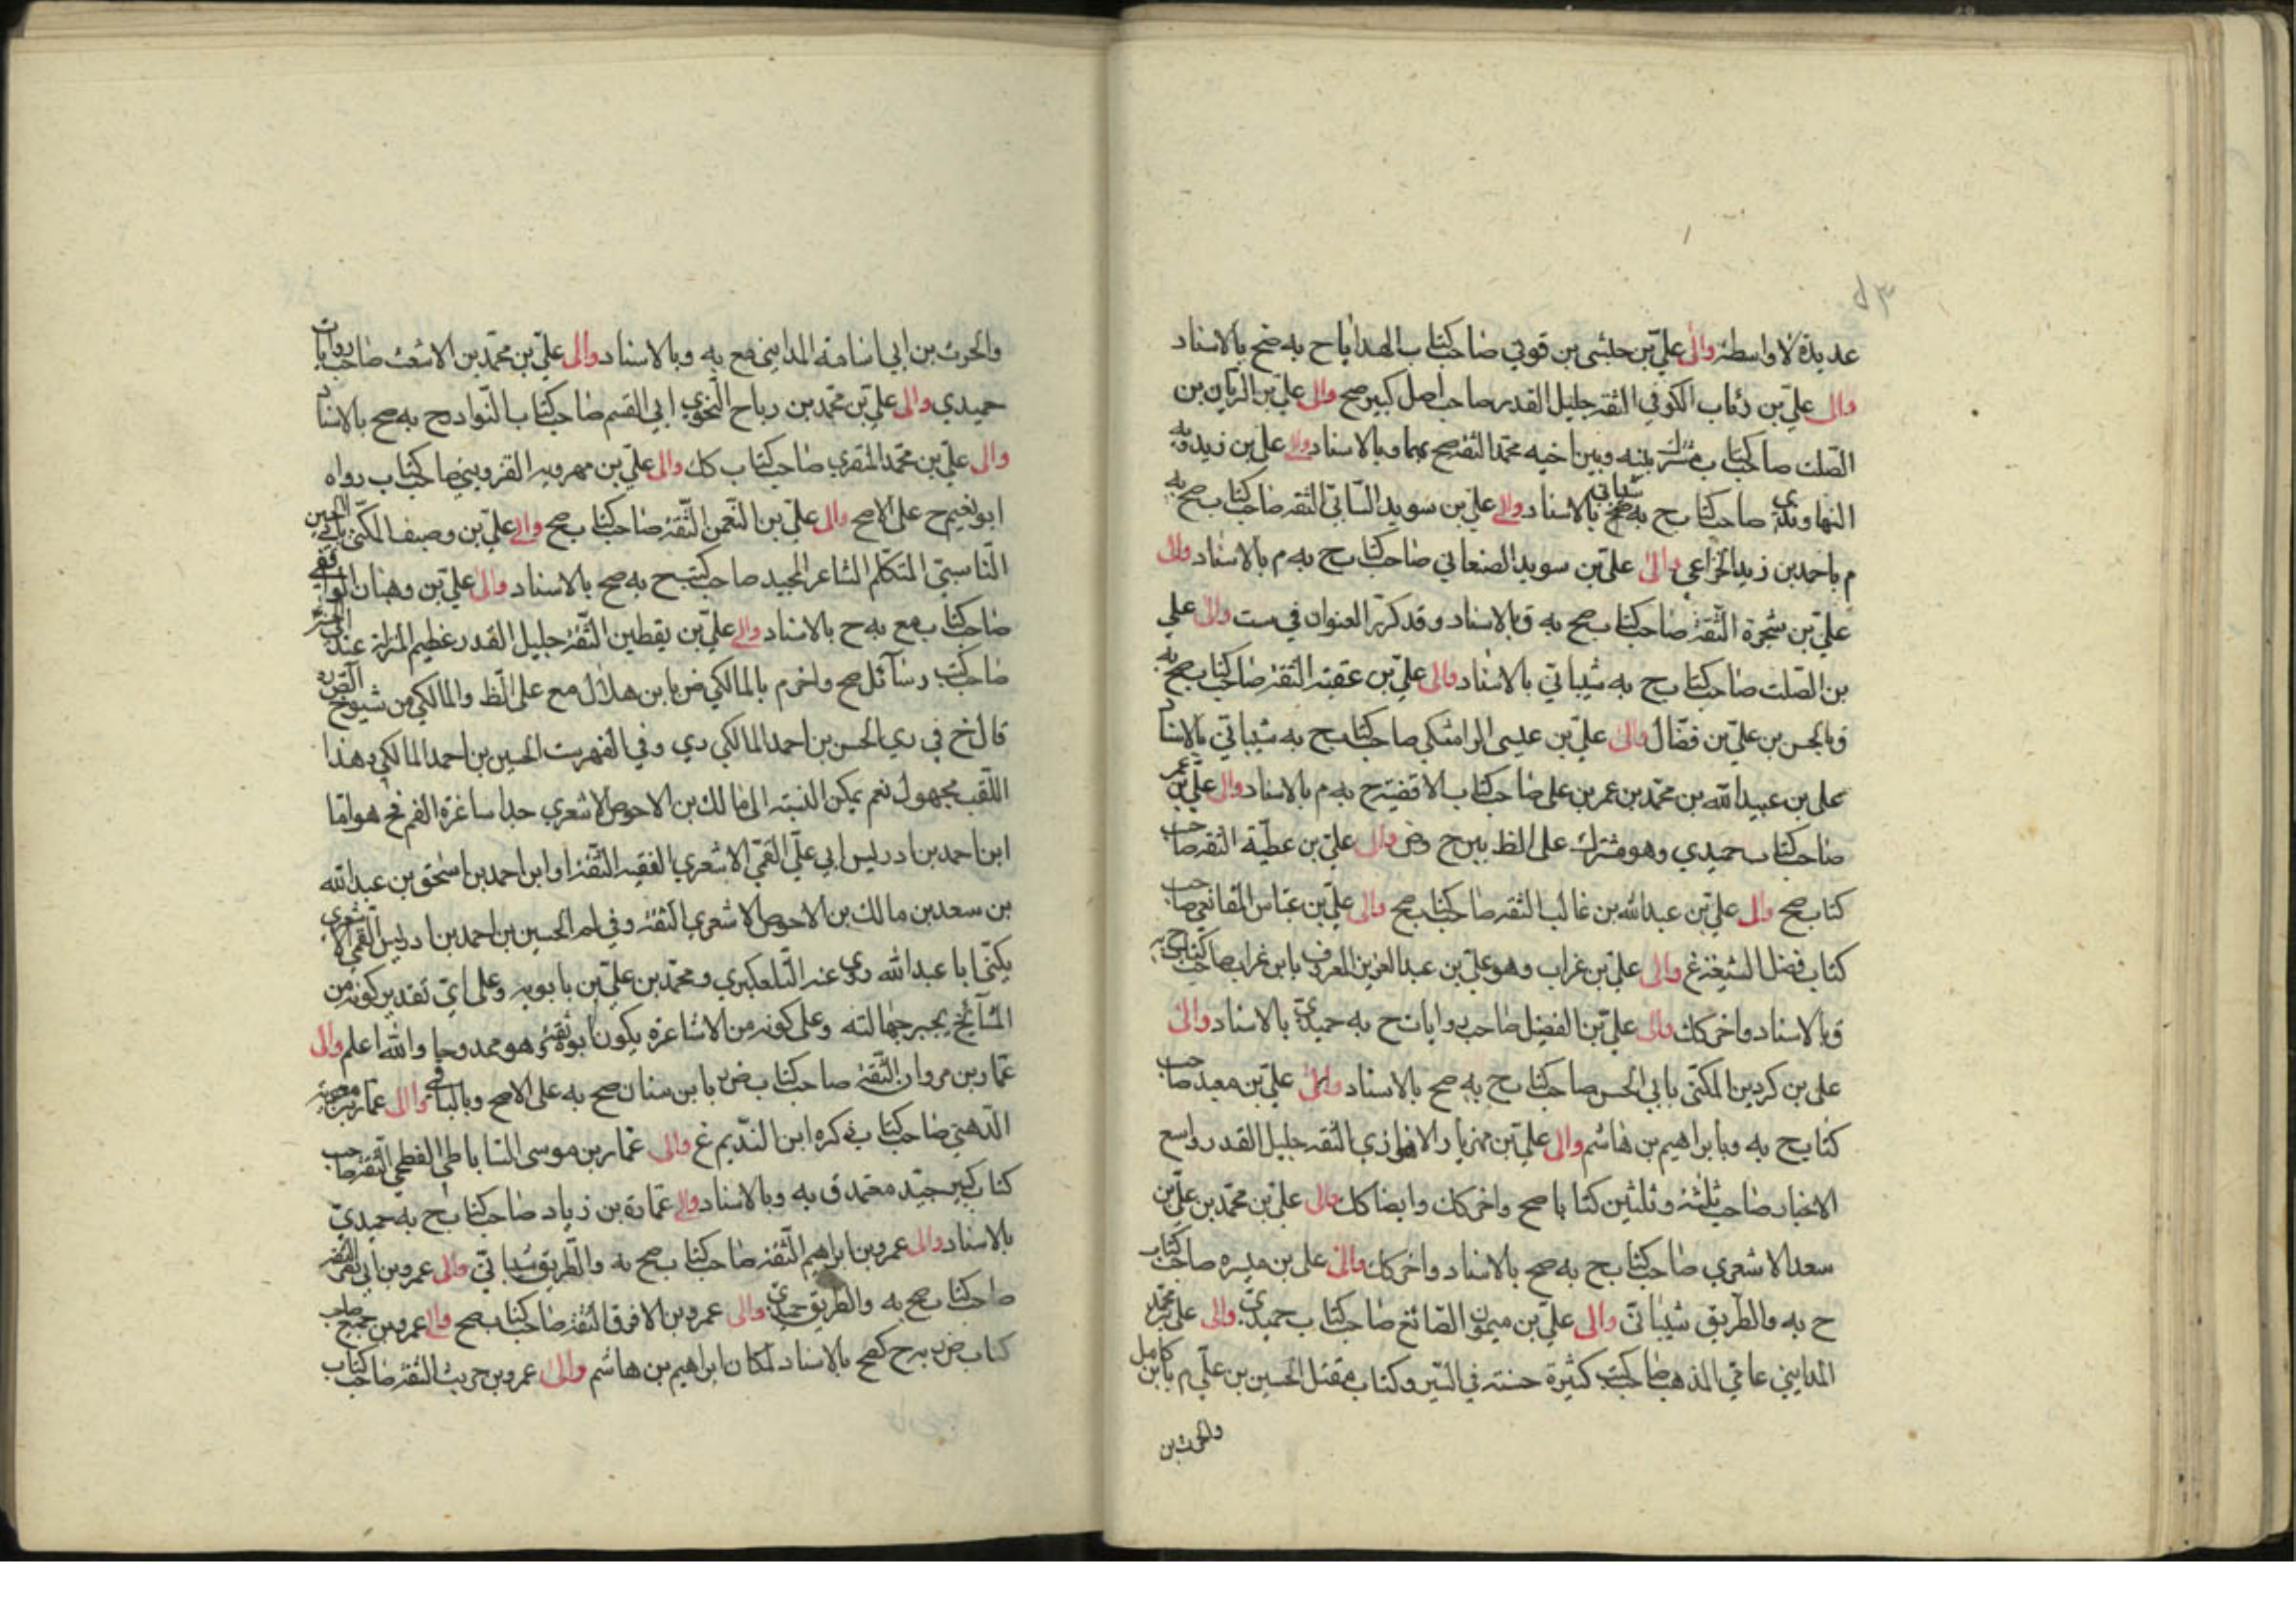 عديدة لا واسطة والى علي بن حبشي بن قوني صاحب كتاب الهدايا ح به صح بالاسناد
والى علي بن رئاب الكوفي الثقة جليل القدر صاحب اصل كبير صح والى علي بن الريان بن
الصلت صاحب كتاب مشترك بينه وبين اخيه محمد الثقة صح بهما وبالاسناد والى علي بن زيدويه
النهاوندي صاحب كتاب ح به صح شيباني بالاسناد والى علي بن سويد السائي الثقة صاحب كتاب صح به
م باحمد بن زيد الخزاعي والى علي بن سويد الصنعاني صاحب كتاب ح به م بالاسناد والى
علي بن شجرة الثقة صاحب كتاب صح به ق بالاسناد وقد كرر العنوان في ست والى علي
بن الصلت صاحب كتاب ح به شيباني بالاسناد والى علي بن عقبة الثقة صاحب كتاب صح به
ق بالحسن بن علي بن فضال والى علي بن عيسى الرامشكي صاحب كتاب ح به شيباني بالاسناد
علي بن عبيد الله بن محمد بن عمر بن علي صاحب كتاب الاقضية ح به م بالاسناد والى علي بن عمر
صاحب كتاب حميدي وهو مشترك على الظ بين ح وض والى علي بن عطية الثقة صاحب
كتاب صح والى علي بن عبد الله بن غالب الثقة صاحب كتاب صح والى علي بن عباس المقانعي صاحب
كتاب فضل الشيعة غ والى علي بن غراب وهو علي بن عبد العزيز المعروف بابن غراب صاحب كتاب ح به
ق بالاسناد واخر كك والى علي بن الفضيل صاحب روايات ح به حميدي بالاسناد والى
علي بن كردين المكنى بابي الحسن صاحب كتاب ح به صح بالاسناد والى علي بن معبد صاحب
كتاب ح به وبابراهيم بن هاشم والى علي بن مهزيار الاهوازي الثقة جليل القدر واسع
الاخبار صاحب ثلثة وثلثين كتابا صح واخر كك وايضا كك والى علي بن محمد بن علي بن
سعد الاشعري صاحب كتاب ح به صح بالاسناد واخر كك والى علي بن ميسره صاحب كتاب
ح به والطريق شيباني والى علي بن ميمون الصائغ صاحب كتاب حميدي والى علي بن محمد
المدايني عامي المذهب صاحب كتب كثيرة حسنة في السير وكتاب مقتل الحسين بن علي م بابن كامل
والحرث بن
والحرث بن ابي اسامة المدايني مع به وبالاسناد والى علي بن محمد بن الاشعث صاحب روايات
حميدي والى علي بن محمد بن رباح النحوي ابي القسم صاحب كتاب النوادر ح به صح بالاسناد
والى علي بن محمد المنقري صاحب كتاب كك والى علي بن مهرويه القزويني صاحب كتاب رواه
ابو نعيم ح على الاصح والى علي بن النعمن الثقة صاحب كتاب صح والى علي بن وصيف المكنى بابي الحسين
الناسبي المتكلم الشاعر المجيد صاحب كتب ح به صح بالاسناد والى علي بن وهبان الواقفي
صاحب كتاب مع به ح بالاسناد والى علي بن يقطين الثقة جليل القدر عظيم المنزلة عند
صاحب كتب رسائل صح واخر م بالمالكي ض بابن هلال مع على الظ والمالكي من شيوخ الصدوق
قال خ في ري الحسن بن احمد المالكي دي وفي الفهرست الحسين بن احمد المالكي وهذا
اللقب مجهول نعم يمكن النسبة الى مالك بن الاحوص الاشعري جد اساعرة القم فح هو اما
ابن احمد بن ادريس ابي علي القمي الاشعري الفقيه الثقة او ابن احمد بن اسحق بن عبد الله
بن سعد بن مالك بن الاحوص الاشعري الثقة وفي لم الحسين بن احمد بن ادريس القمي الاشعري
يكنى ابا عبد الله روى عنه التلعكبري ومحمد بن علي بن بابويه وعلى اي تقدير كونه من
المشائخ يجبر جهالته وعلى كونه من الاشاعرة يكون ابوه ثقة وهو ممدوحا والله اعلم والى
عمار بن مروان الثقة صاحب كتاب ض بابن سنان صح به على الاصح وبالباقي والى عمار بن معوية
الدهني صاحب كتاب ذكره ابن النديم غ والى عمار بن موسى الساباطي الفطحي الثقة صاحب
كتاب كبير جيد معتمد ق به وبالاسناد والى عمارة بن زياد صاحب كتاب ح به حميدي
بالاسناد والى عمرو بن ابراهيم الثقة صاحب كتاب صح به والطريق شيباني والى عمرو بن ابي نصر الثقة
صاحب كتاب صح به والطريق حميدي والى عمرو بن الافرق الثقة صاحب كتاب صح والى عمرو بن جميع صاحب
كتاب ض به ح كصح بالاسناد لمكان ابراهيم بن هاشم والى عمرو بن حريث الثقة صاحب كتاب